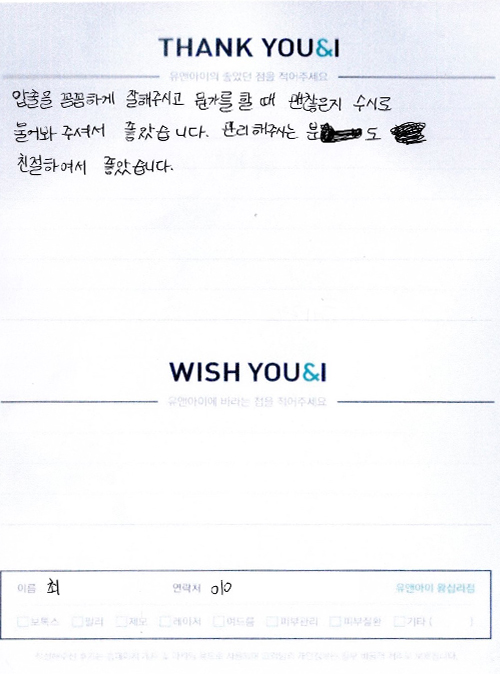 THANK YOU&I
유앤아이의 좋았던 점을 적어주세요
압출을 꼼꼼하게 잘해주시고 뭔가를 할 때 괜찮은지 수시로
물어봐 주셔서 좋았습니다. 관리해주시는 분 도
친절하여서 좋았습니다.
WISH YOU&I
유앤아이에 바라는 점을 적어주세요
이름 최 연락처 010 유앤아이 왕십리점
보톡스 필러 제모 레이저 여드름 피부관리 피부질환 기타 ( )